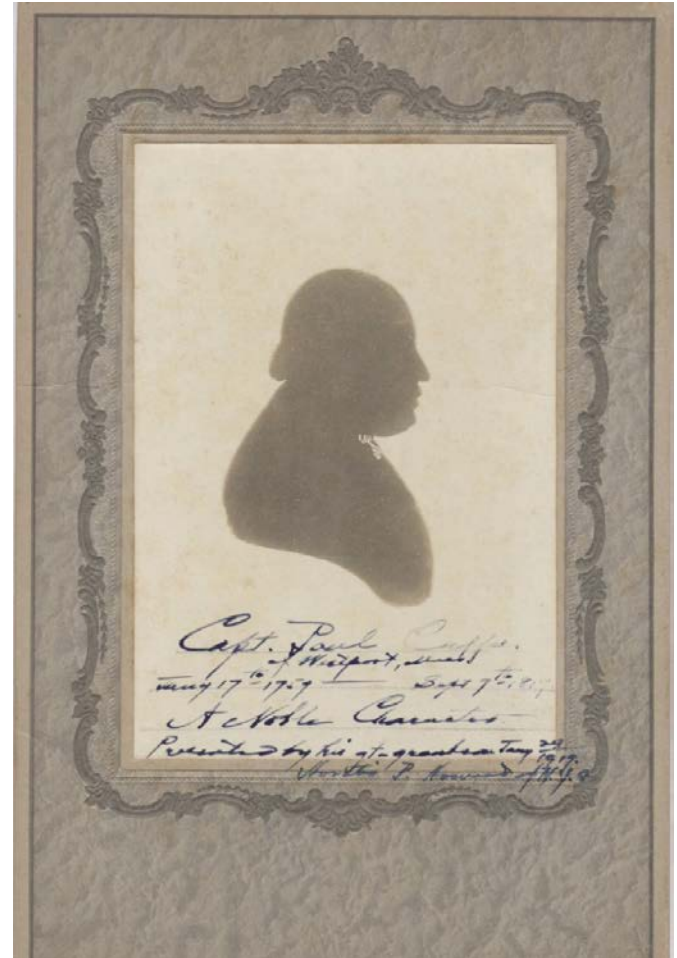 Capt. Paul Cuffe.
of Westport, Mass
Jany 17th 1759 — Sept 7th
A Noble Character
Presented by his gt-grandson Jany 29
1919.
P. Howard of N.Y.